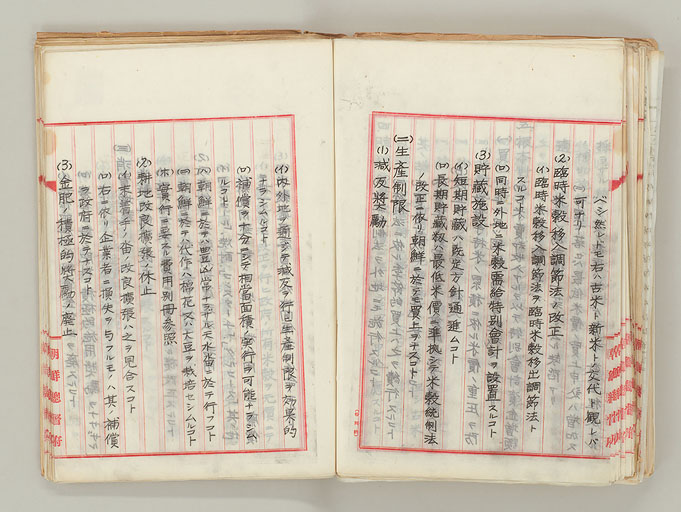 ベシ然レドモ右ハ古米ト新米トノ交代ト觀レバ
可ナリ
(2)臨時米穀移入調節法ノ改正
(イ)臨時米穀移入調節法ヲ臨時米穀移出調節法ト
スルコト
(ロ)同時ニ外地ニ米穀需給特別會計ヲ設置スルコト
(3)貯藏施設
(イ)短期貯藏ハ既定方針通進ムコト
(ロ)長期貯藏籾ハ最低米價ニ準據シテ米穀統制法
ノ改正ニ依リ朝鮮ニ於テモ買上ヲナスコト
(二)生產制限
(1)減反獎勵
(イ)內外地ヲ通ジテ減反ヲ行ヒ生產制限ヲ効果的
ナラシムルコト
(ロ)補償ヲ十分ニシテ相當面積ノ實行ヲ可能ナラシム
ルコト
(ハ)朝鮮ニ於テハ豊凶常ナラザル水畓ニ於テ行フコト
(ニ)朝鮮ニ於テハ代作ハ棉花又ハ大豆ヲ栽培セシムルコト
(ホ)實行ニ要スル費用別冊參照
(2)耕地改良擴張ノ休止
(イ)未着手ノ畓ノ改良擴張ハ之ヲ見合スコト
(ロ)右ニ依リ企業者ニ損失ヲ與フルモノハ其ノ補償
ヲ政府ニ於テナスコト
(3)金肥ノ積極的獎勵ノ廢止
朝鮮總督府